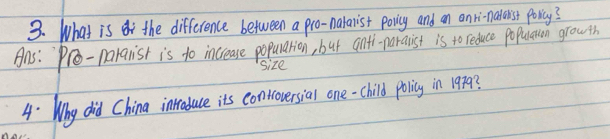 3. What is the difference between a pro-natalist policy and an anti-natalist policy?
Ans: Pro-natalist is to increase population, but anti-natalist is to reduce population growth
size
4. Why did China introduce its controversial one-child policy in 1979?